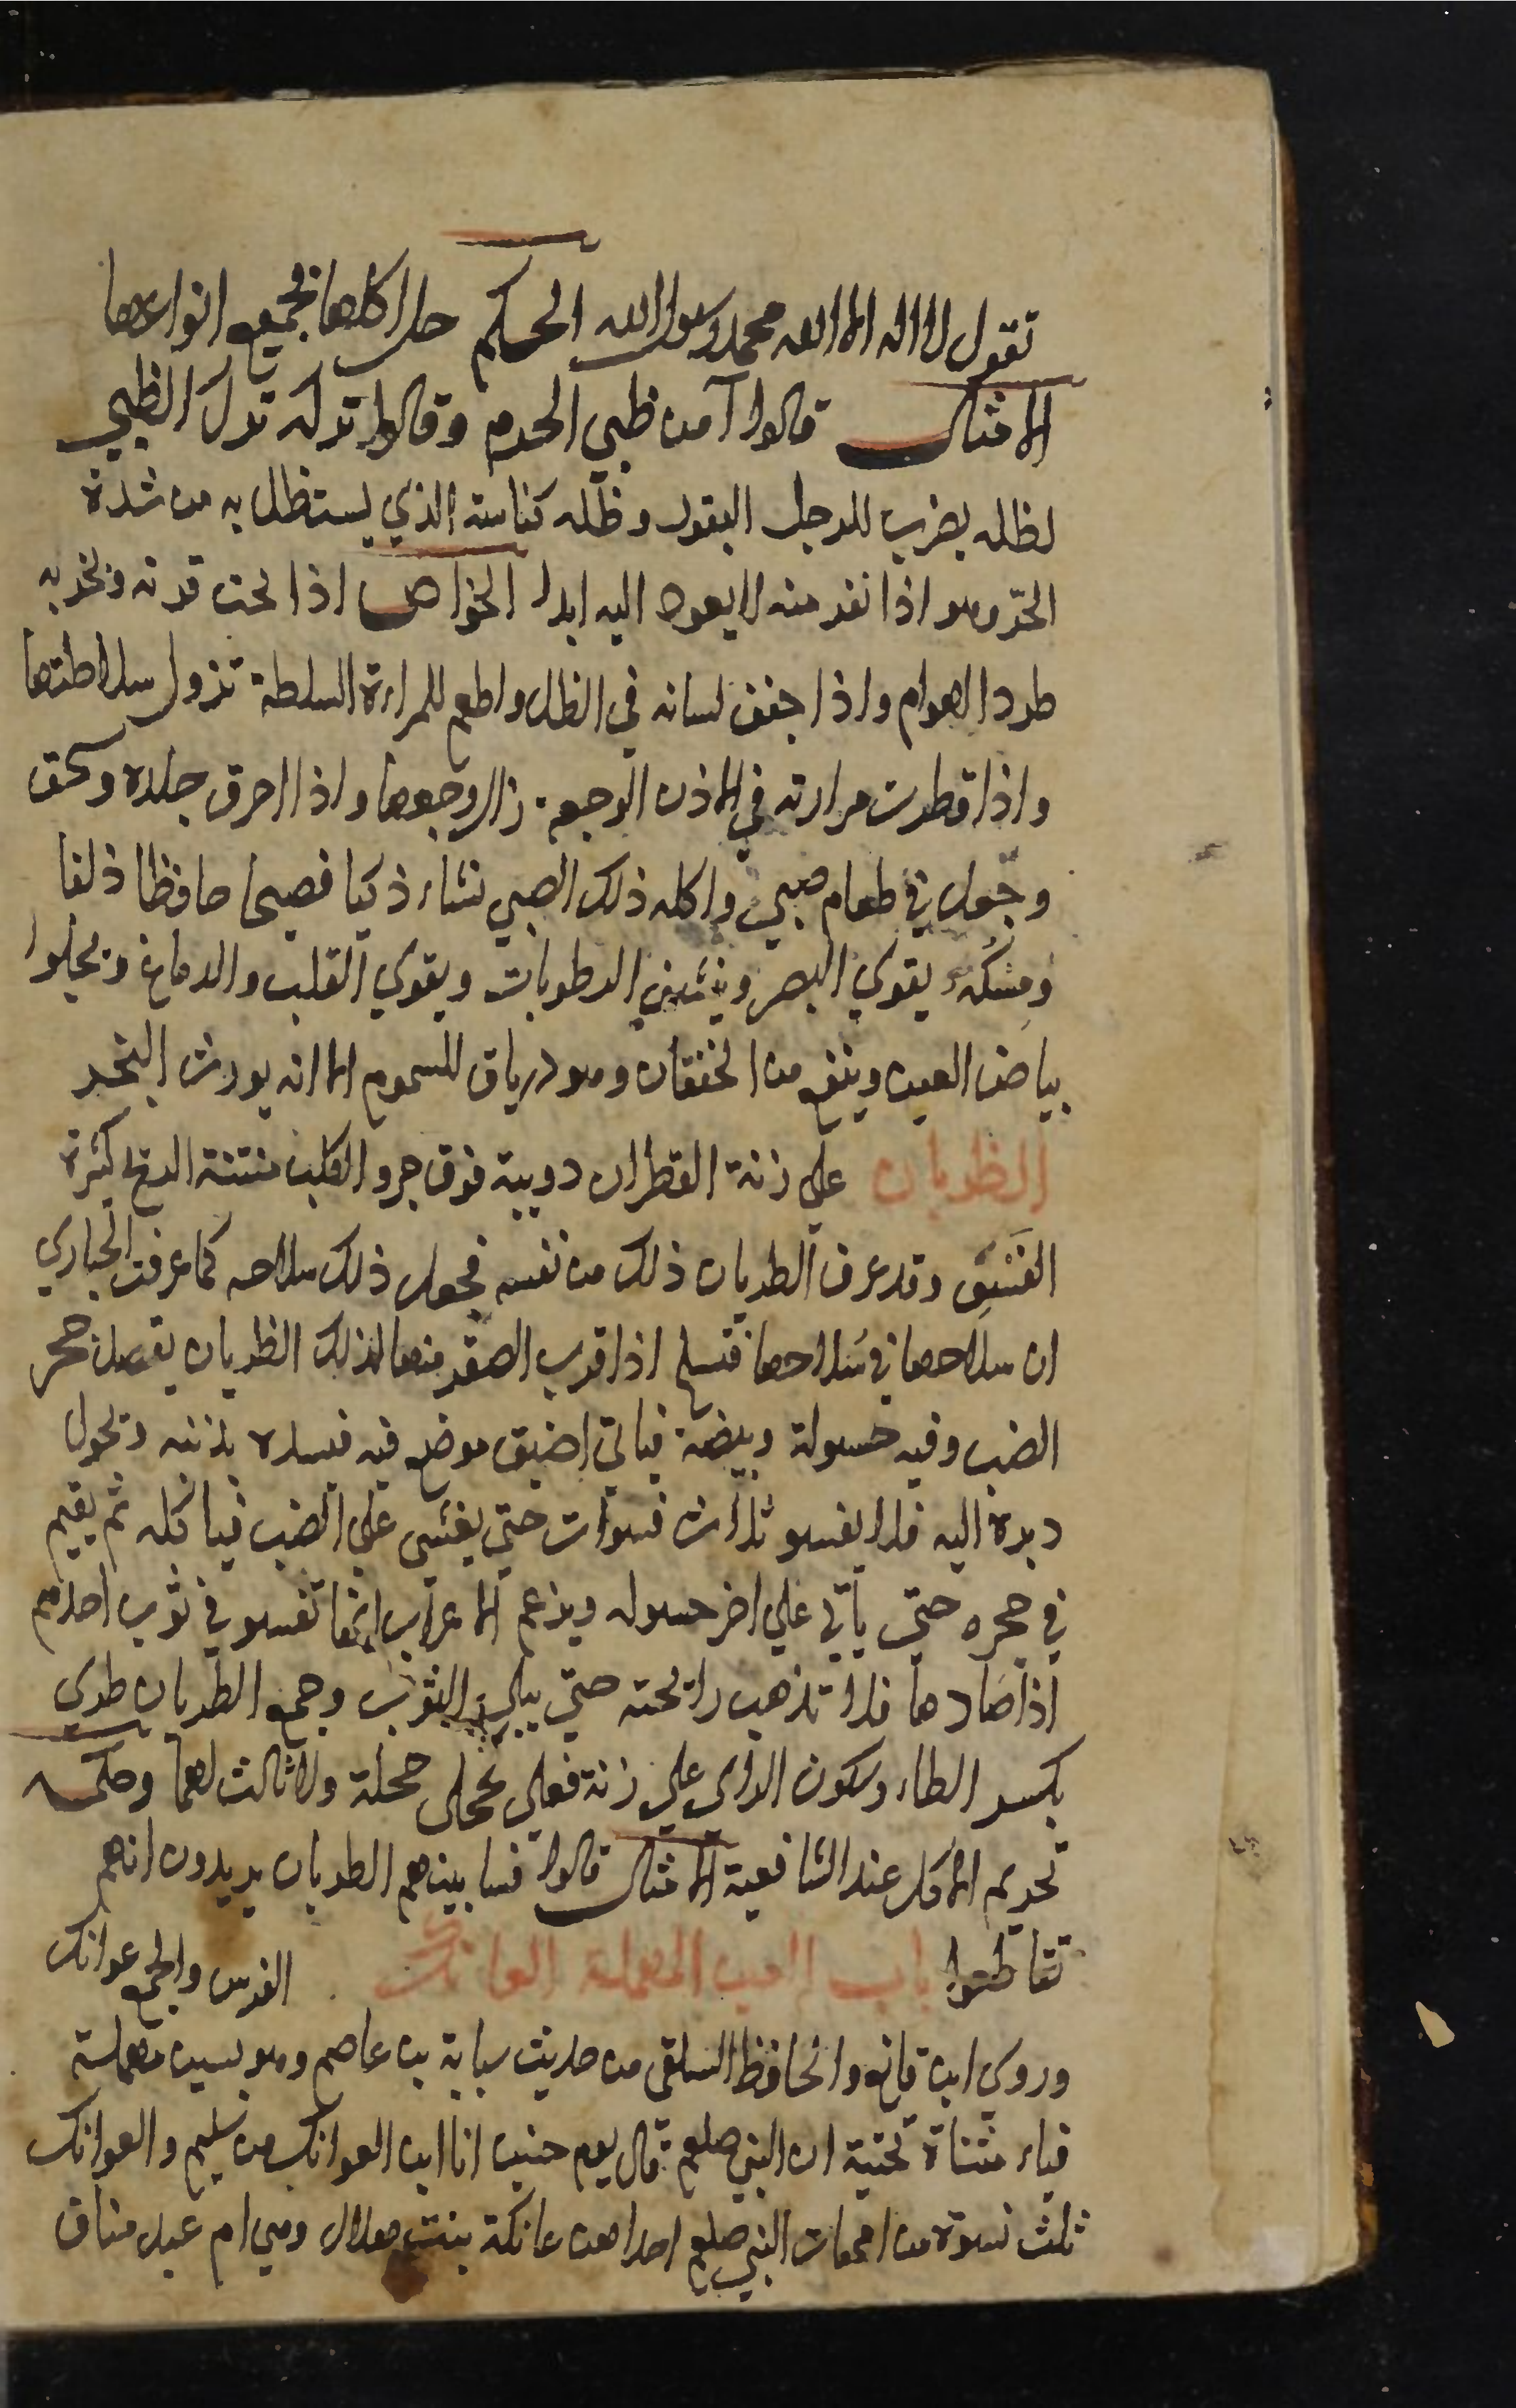 تقول لا اله الا الله محمد رسول الله الحكم حل اكلها بجميع انواعها
الامثال قالوا آمن ظبي الحرم وقالوا تركه ترك الظبي
لظله يضرب للرجل النفور وظله كناسه الذي يستظل به من شدة
الحر وهو اذا نفر منه لا يعود اليه ابدا الخواص اذا نحت قرنه وبخر به
طرد الهوام واذا جفف لسانه في الظل واطعم للمراءة السلطة تزول سلاطتها
واذا قطرت مرارته في الاذن الوجعة زال وجعها واذا احرق جلده وسحق
وجعل في طعام صبي واكله ذلك الصبي نشاء ذكيا فصيحا حافظا ذلقا
ومسكه يقوي البصر وينشف الرطوبات ويقوي القلب والدماغ ويجلوا
بياض العين وينفع من الخفقان وهو درياق للسموم الا انه يورث البخر
الظربان على زنة القطران دويبة فوق جرو الكلب منتنة الريح كثيرة
الفسو وقد عرف الظربان ذلك من نفسه فجعل ذلك سلاحه كما عرفت الحباري
ان سلاحها في سلاحها فتسلح اذا قرب الصقر منها لذلك الظربان يقصد جحر
الضب وفيه حسولة وبيضه فياتي اضيق موضع فيه فيسده بذنبه ويحول
دبره اليه فلا يفسو ثلاث فسوات حتي يغشي علي الضب فياكله ثم يقيم
في جحره حتي ياتي علي اخر حسوله ويزعم الاعراب انها تفسو في ثوب احدهم
اذا صادها فلا تذهب رائحته حتي يبلي الثوب وجمع الظربان ظربي
بكسر الظاء وسكون الراي علي زنة فعلي كحجلى حجلة ولا ثالث لهما وحكمه
تحريم الاكل عند الشافعية الامثال قالوا فسا بينهم الظربان يريدون انهم
تقاطعوا باب العين المهملة العاتك الفرس والجمع عواتك
وروي ابن قانع والحافظ السلفى من حديث سيابة بن عاصم وهو بسين مهملة
فياء مثناة تحتية ان النبي صلعم قال يوم حنين انا ابن العواتك من سليم والعواتك
ثلث نسوة من امهات النبي صلعم احداهن عاتكة بنت هلال وهي ام عبد مناف